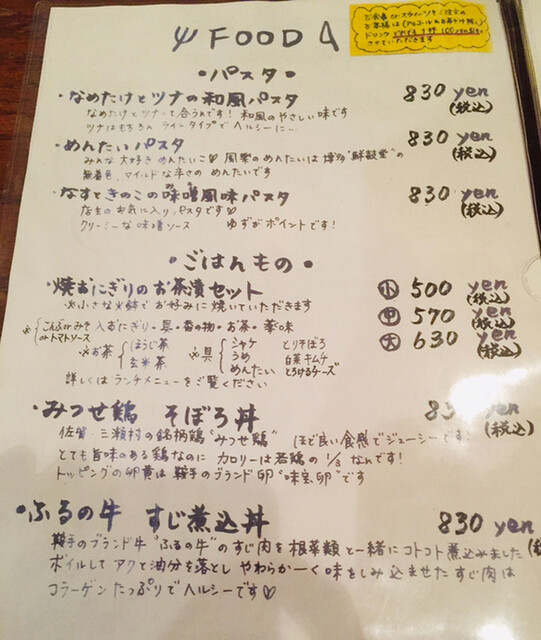 お食事 or スイーツをご注文の
お客様は(アルコール & お茶 除く)
ドリンク どれでも1杯 100yen 引き
させていただきます
FOOD
・パスタ・
・なめたけとツナの和風パスタ 830 yen (税込)
なめたけとツナって合うんです! 和風のやさしい味です
ツナはもちろん ライトタイプで ヘルシーに…
・めんたいパスタ 830 yen (税込)
みんな大好き めんたいこ♡ 風楽のめんたいは 博多"鮮設堂"の
無着色、マイルドな辛さの めんたいです
・なすときのこの味噌風味パスタ 830 yen (税込)
店主のお気に入りパスタです♡
クリーミーな味噌ソース ゆずがポイントです!
・ごはんもの・
・焼おにぎりのお茶漬セット 小 500 yen (税込)
※小さな火鉢で お好みに焼いていただきます 中 570 yen (税込)
※こんぶ or みそ or トマトソース 入おにぎり・具・香の物・お茶・薬味 大 630 yen (税込)
※お茶 ほうじ茶 玄米茶 ※具 シャケ うめ めんたい とりそぼろ 白菜キムチ とろけるチーズ
詳しくは ランチメニューを ご覧ください
・みつせ鶏 そぼろ丼 830 yen (税込)
佐賀・三瀬村の銘柄鶏"みつせ鶏" ほど良い食感でジューシーです!
とても旨味のある鶏なのに カロリーは若鶏の 1/3 なんです!
トッピングの卵黄は 鞍手のブランド卵"味宝卵"です
・ふるの牛 すじ煮込丼 830 yen (税込)
鞍手のブランド牛"ふるの牛"のすじ肉を 根菜類と一緒に コトコト煮込みました
ボイルして アクと油分を落とし やわらかーく 味をしみ込ませた すじ肉は
コラーゲン たっぷりで ヘルシーです♡